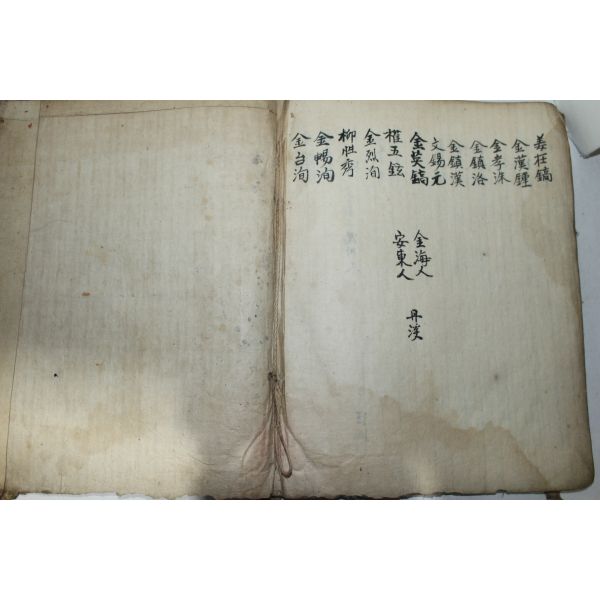 姜在鎬
金漢鍾
金孝洙
金鎮洛
金鎮漢
文錫元
金英鎬
權五鉉
金烈洵
柳胜秀
金暢洵
金台洵
金海人
安東人
丹溪